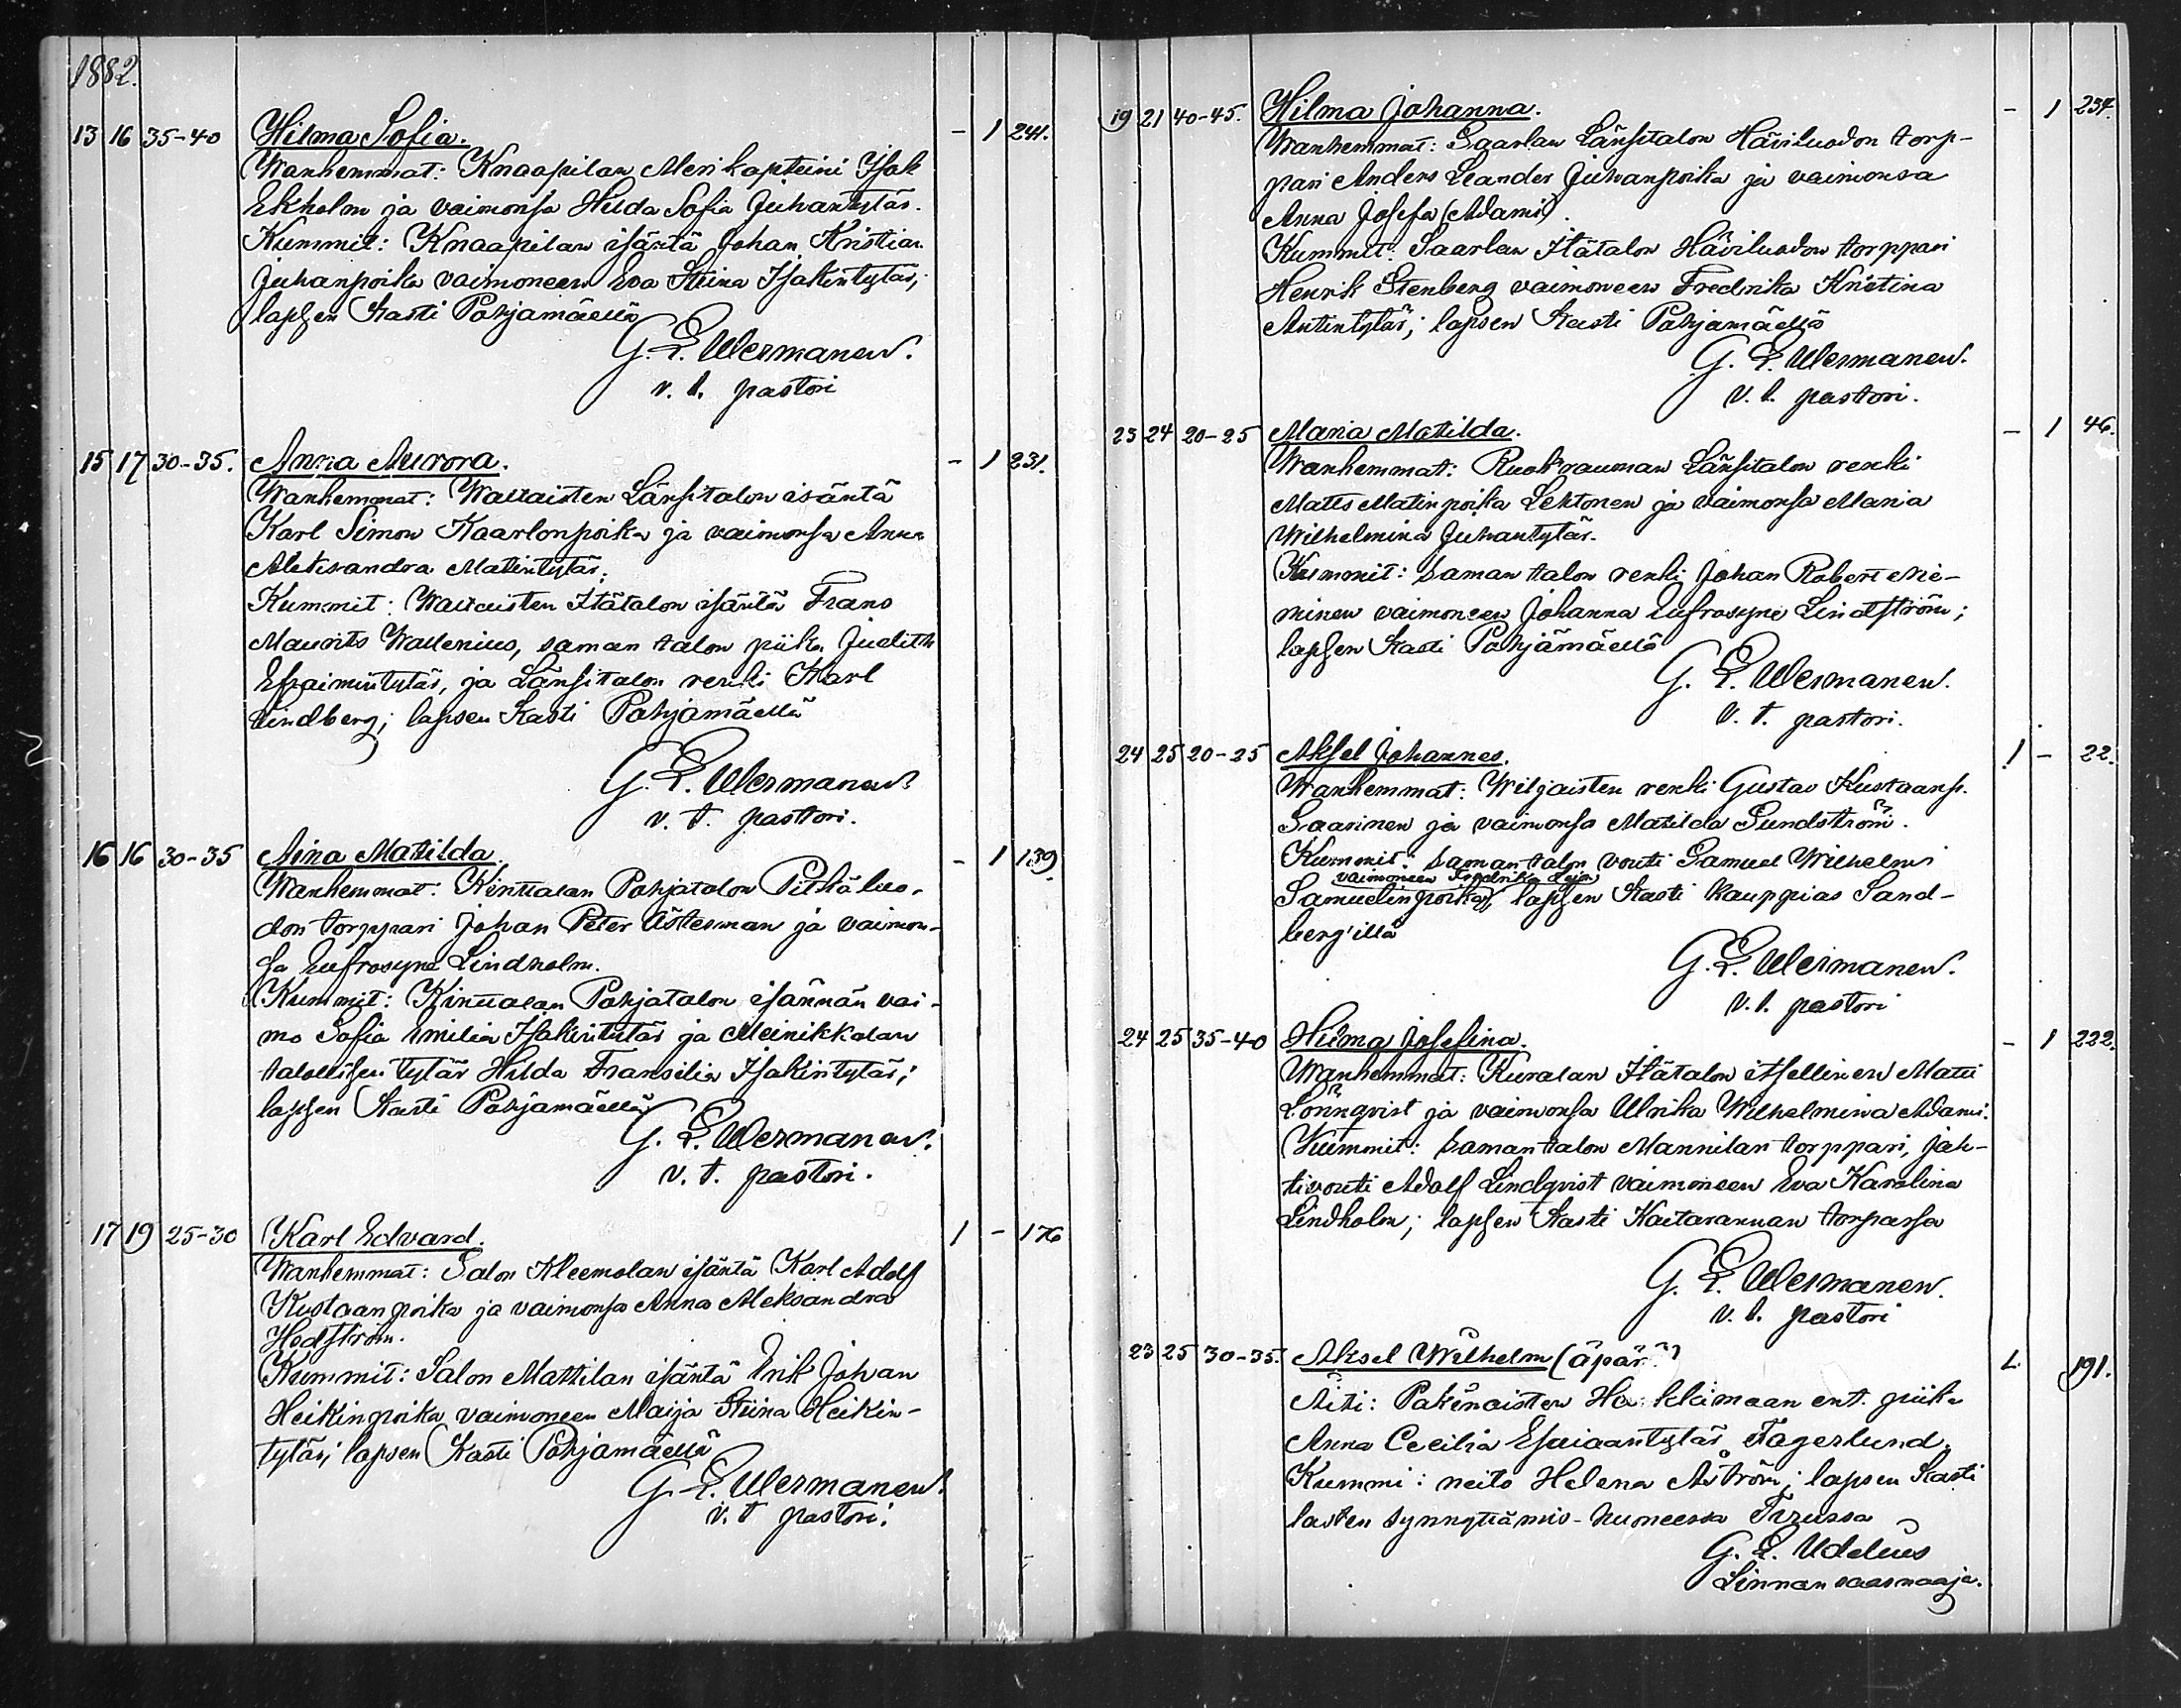 1882.
13 16 35-40 Hilma Sofia. - 1 241.
Wanhemmat: Knaapilan Merikapteini Isak
Ekholm ja vaimonsa Hilda Sofia Juhantytär.
Kummit: Knaapilan isäntä Johan Kristian
Juhanpoika vaimoneen Eva Stiina Isakintytär;
lapsen Kasti Pohjamäellä
G. E. Wermanen.
v. t. pastori
15 17 30-35. Anna Aurora. - 1 231.
Wanhemmat: Länsitalon isäntä
Karl Simon Kaarlonpoika ja vaimonsa Anna
Aleksandra Matintytär.
Kummit: Itätalon isäntä Frans
Maurits Wallenius, saman talon piika Judith
Esaimintytär, ja Länsitalon renki Karl
Lindberg; lapsen Kasti Pohjamäellä
G. E. Wermanen.
v. t. pastori.
16 16 30-35 Aina Matilda. - 1 139.
Wanhemmat: Pohjatalon Pitkäluo-
don torppari Johan Peter Östesman ja vaimon-
sa Eufrosyne Lindholm.
Kummit: Pohjatalon isännän vai-
mo Sofia Emilia Isakintytär ja Meinikkalan
talollisen tytär Hilda Fransilia Isakintytär;
lapsen Kasti Pohjamäellä
G. E. Wermanen.
v. t. pastori.
17 19 25-30 Karl Edvard. 1 - 176
Wanhemmat: Salon Kleemolan isäntä Karl Adolf
Kustaanpoika ja vaimonsa Anna Aleksandra
Hedström.
Kummit: Salon Mattilan isäntä Erik Johan
Heikinpoika vaimoneen Maija Stiina Heikin-
tytär; lapsen Kasti Pohjamäellä
G. E. Wermanen.
v. t pastori.
19 21 40-45. Hilma Johanna. - 1 234.
Wanhemmat: Saarlan Länsitalon Häviluodon torp-
pari Anders Leander Juhanpoika ja vaimonsa
Anna Josefa (Adami).
Kummit: Saarlan Itätalon Häviluodon torppari
Henrik Stenberg vaimoneen Fredrika Kristina
Antintytär; lapsen Kasti Pohjamäellä
G. E. Wermanen.
v. t. pastori.
23 24 20-25 Maria Matilda. - 1 46.
Wanhemmat: Ruokrauman Länsitalon renki
Matts Matinpoika Lehtonen ja vaimonsa Maria
Wilhelmina Juhantytär.
Kummit: Saman talon renki Johan Robert Nie-
minen vaimoneen Johanna Eufrosyne Lindström;
lapsen Kasti Pohjamäellä
G. E. Wermanen.
v. t. pastori.
24 25 20-25 Aksel Johannes. 1 - 22.
Wanhemmat: Wiljaisten renki Gustav Kustaanp.
Saarinen ja vaimonsa Matilda Sundström.
Kummit: Saman talon vouti Samuel Wilhelmi
vaimoneen Fredrika
Samuelinpoika, lapsen Kasti kauppias Sand-
berg'illä
G. E. Wermanen.
v. t. pastori
24 25 35-40 Hilma Josefina. - 1 222.
Wanhemmat: Kuralan Itätalon itsellinen Matti
Lönnqvist ja vaimonsa Ulrika Wilhelmina Adami.
Kummit: Saman talon Mannilan torppari, jah-
tivouti Adolf Lindqvist vaimoneen Eva Karolina
Lindholm; lapsen Kasti Kaitarannan torpassa
G. E. Wermanen.
v. t. pastori
23 25 30-35. Aksel Wilhelm (äpär.) 1. 191.
Äiti: Pakinaisten ent. piika
Anna Cecilia Esaiaantytär Fagerlund.
Kummi: neito Helena Åström; lapsen Kasti
lasten synnyttämis-huoneessa Turussa
G. E. Udelius
Linnan saarnaaja.